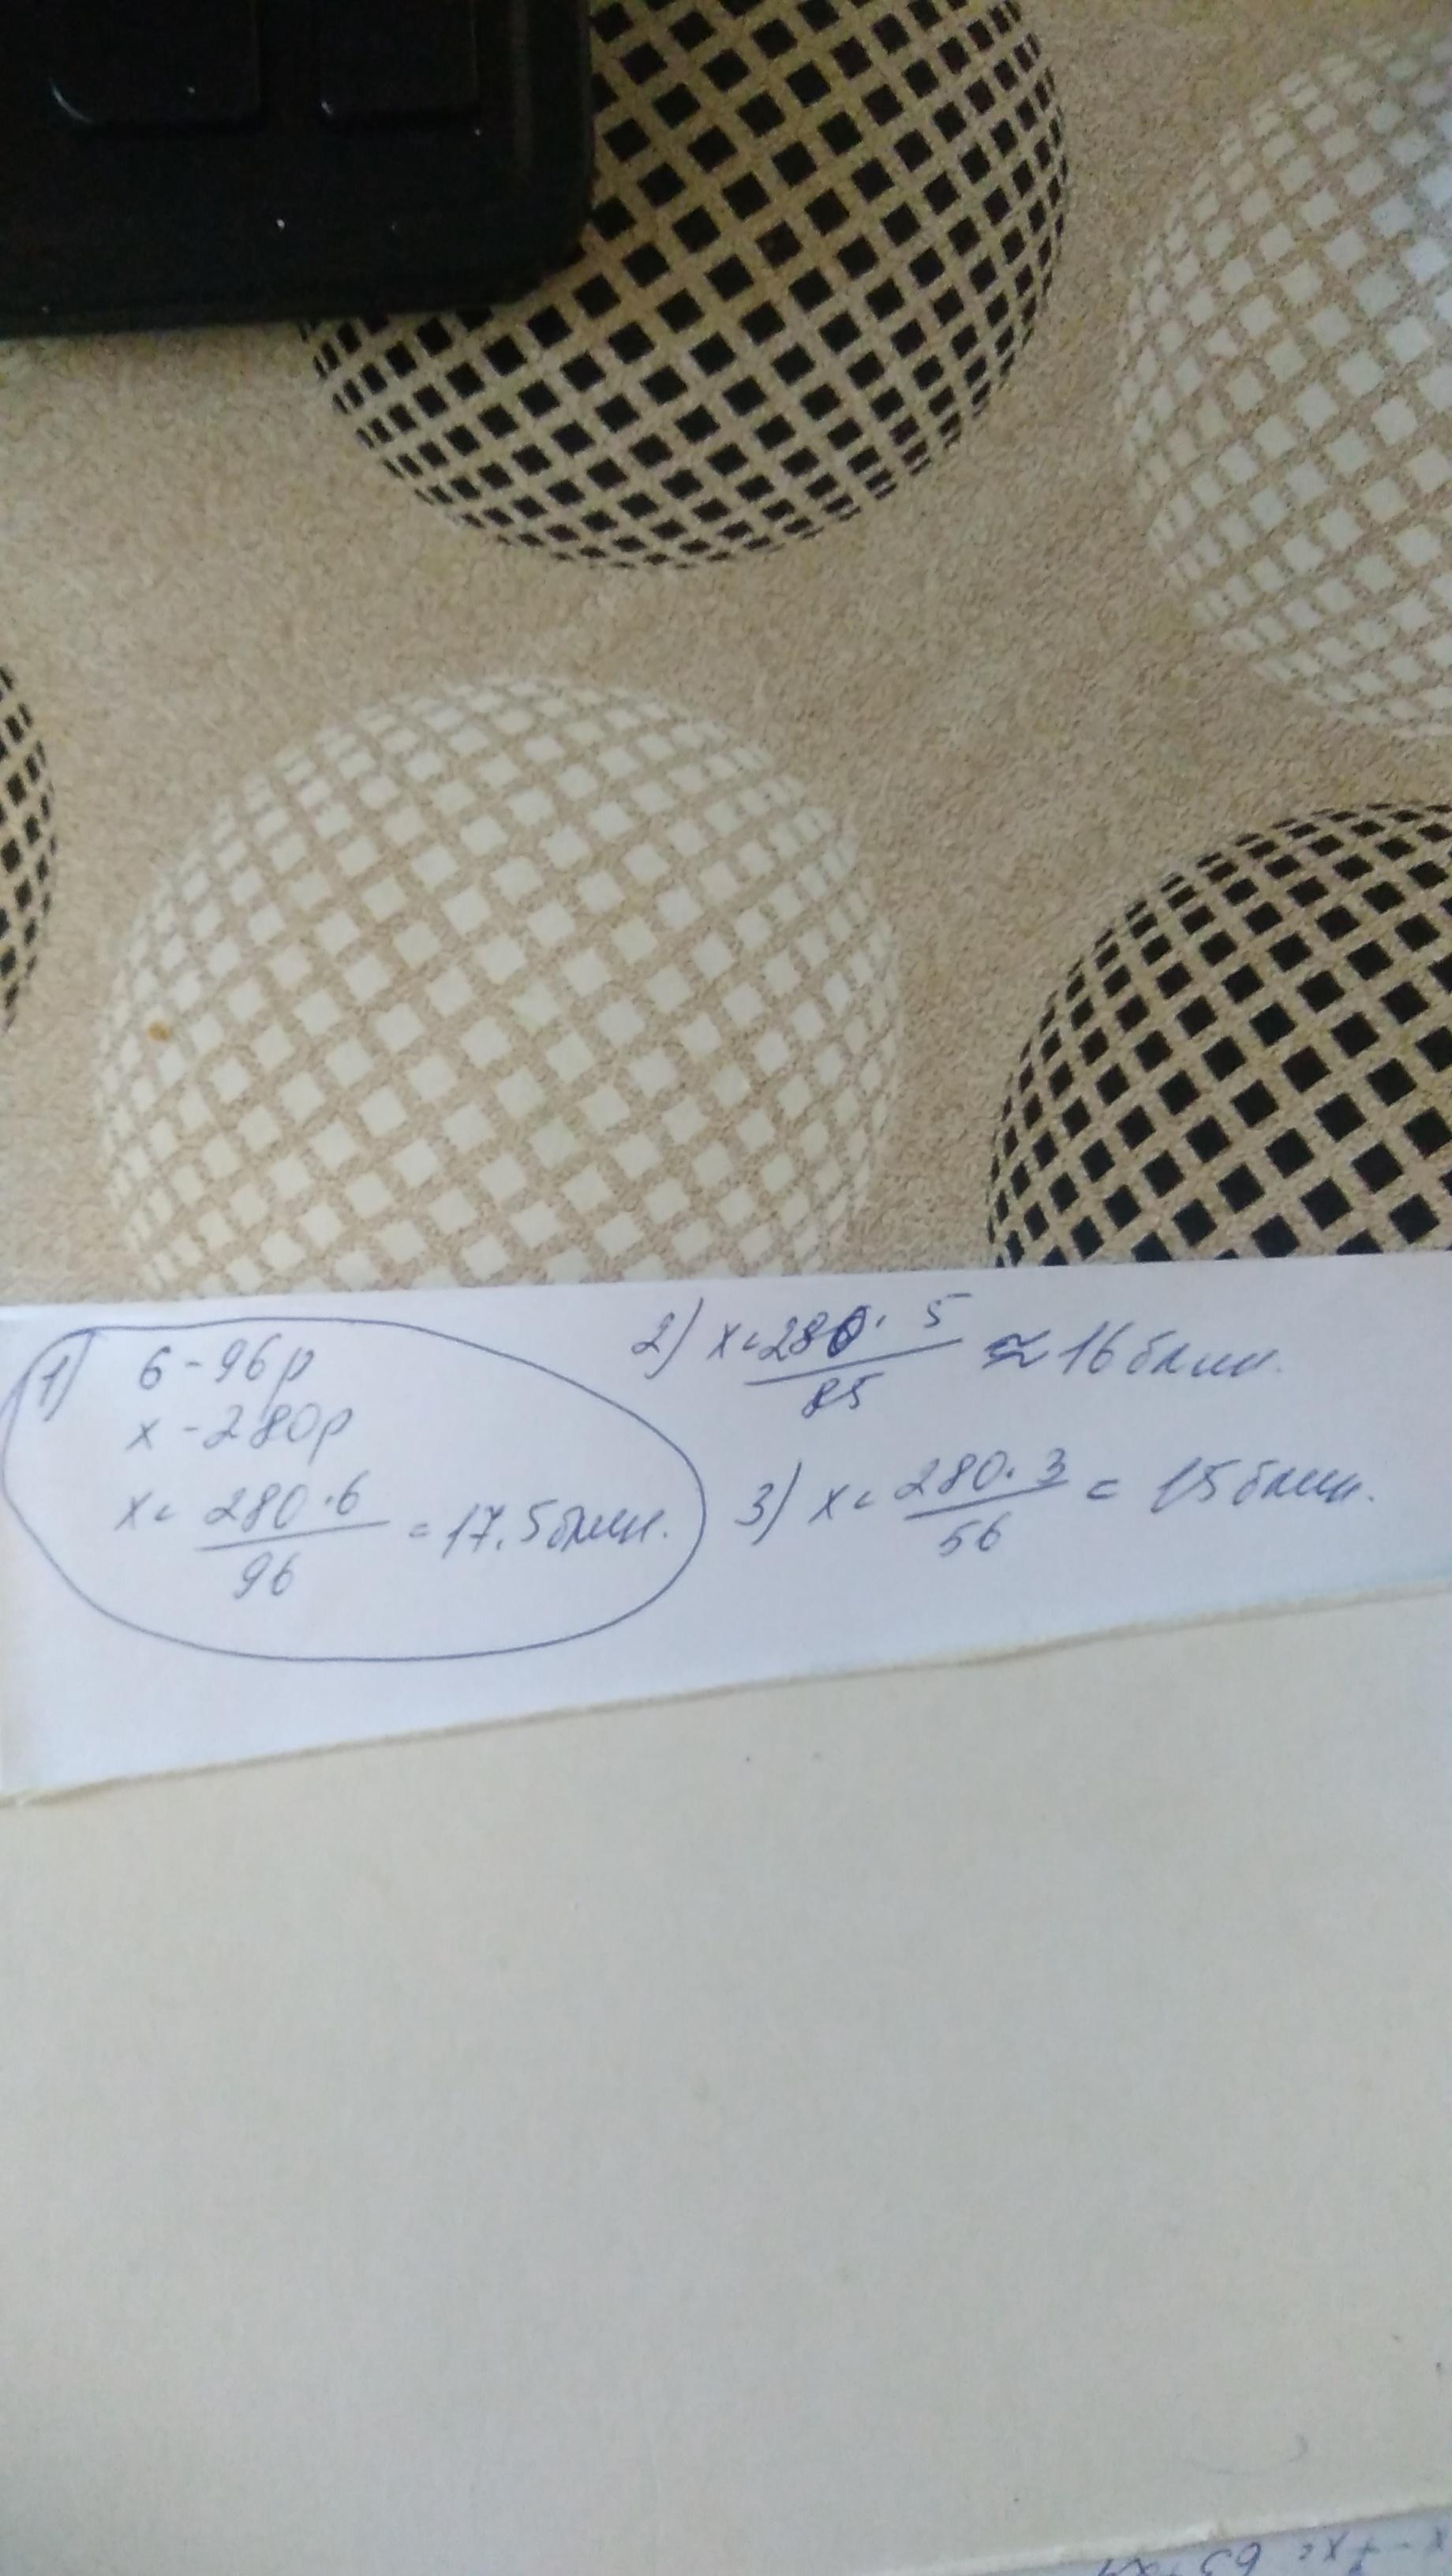 1) 6 - 96р
х - 280р
х = 280 · 6 / 96 = 17,5 блин.
2) х = 280 · 5 / 85 ≈ 16 блин.
3) х = 280 · 3 / 56 = 15 блин.